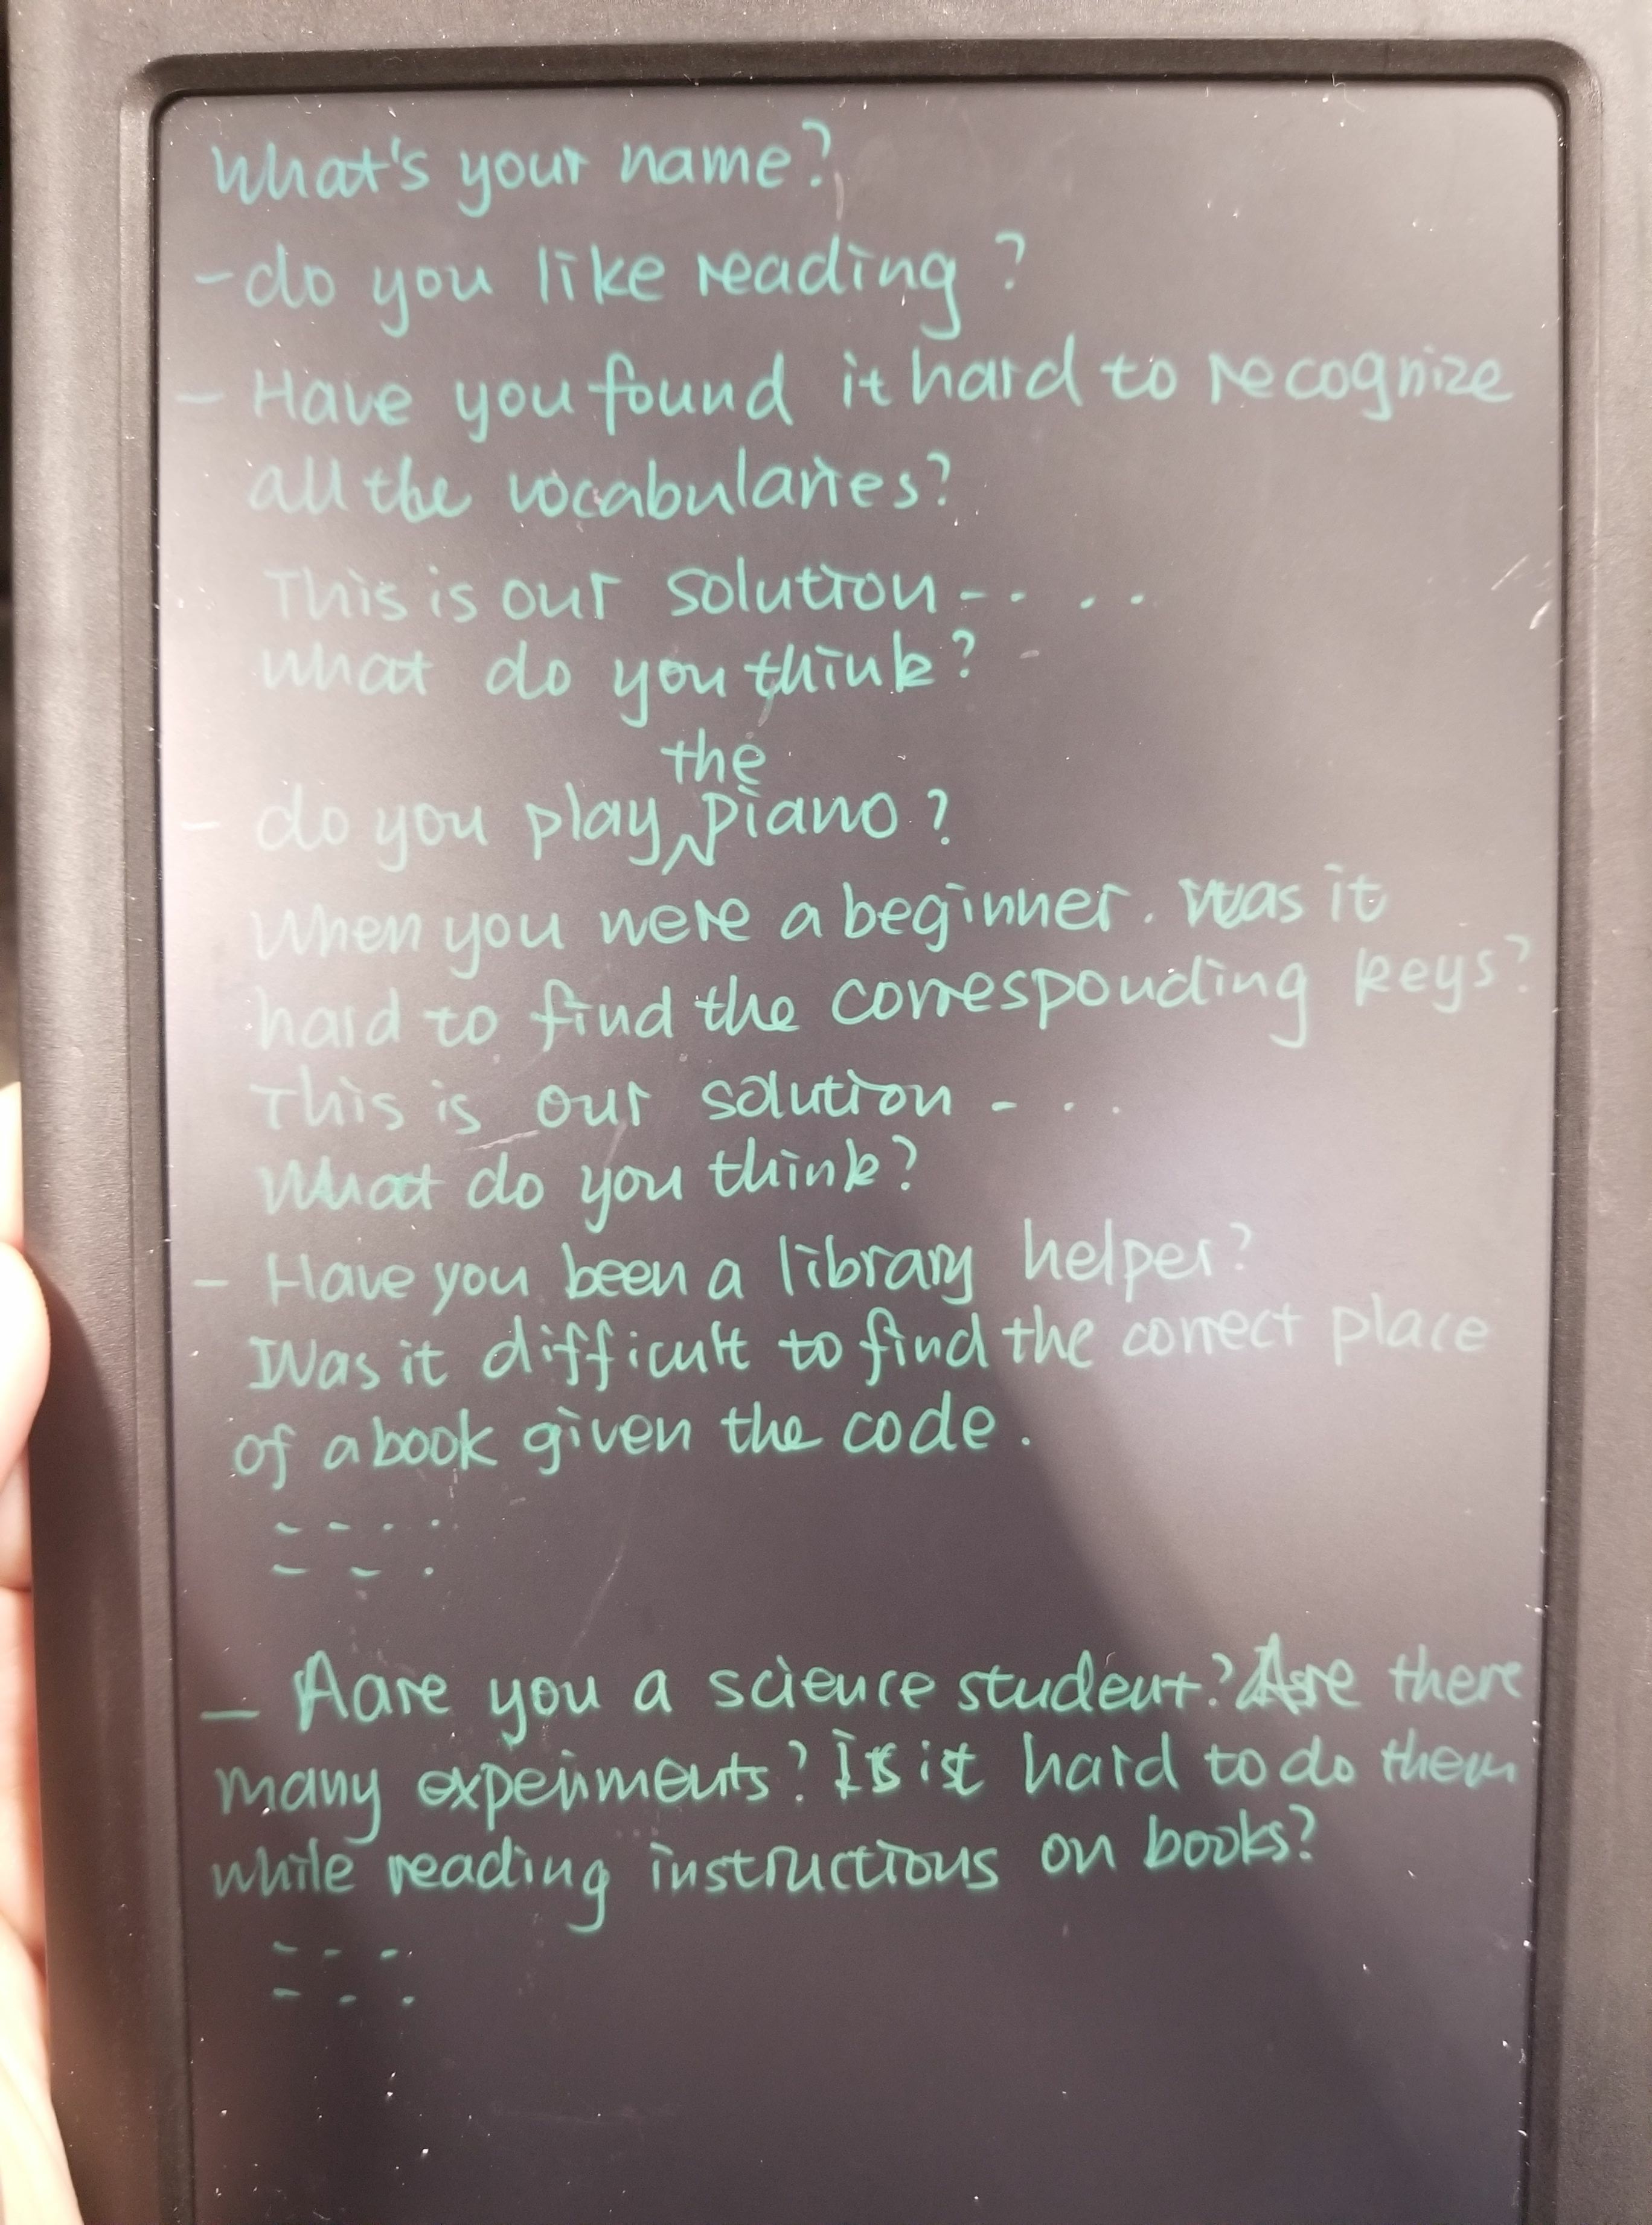 What's your name?
- do you like reading ?
- Have you found it hard to recognize
all the vocabularies?
This is our solution - - . .
what do you think?
the
- do you play piano ?
When you were a beginner. was it
hard to find the corresponding keys?
This is our solution - . .
What do you think?
- Have you been a library helper?
Was it difficult to find the correct place
of a book given the code .
- - . .
- - .
- Aare you a science student? Are there
many experiments? Is it hard to do them
while reading instructions on books?
- - -
- - .